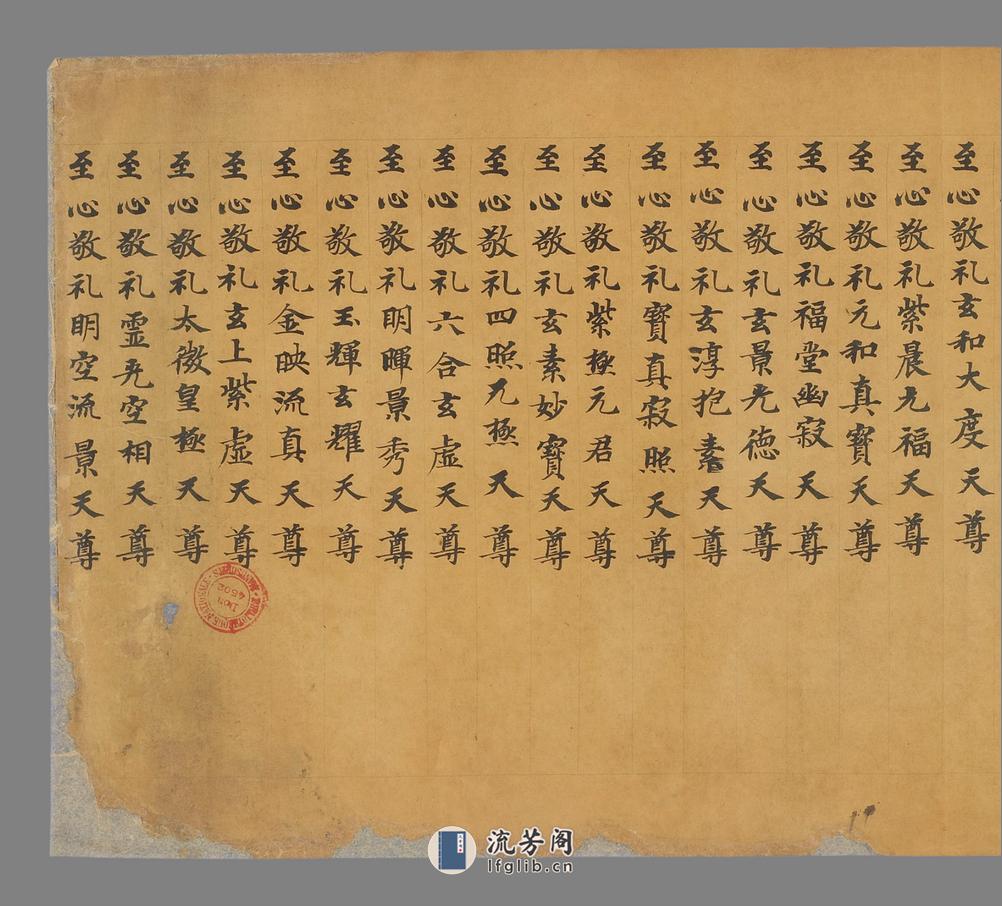 至心敬礼玄和大度天尊
至心敬礼紫晨元福天尊
至心敬礼元和真寳天尊
至心敬礼福堂幽寂天尊
至心敬礼玄景光德天尊
至心敬礼玄淳抱素天尊
至心敬礼寳真寂照天尊
至心敬礼紫極元君天尊
至心敬礼玄素妙寳天尊
至心敬礼四照元極天尊
至心敬礼六合玄虛天尊
至心敬礼明暉景秀天尊
至心敬礼玉輝玄耀天尊
至心敬礼金映流真天尊
至心敬礼玄上紫虛天尊
至心敬礼太微皇極天尊
至心敬礼霊光空相天尊
至心敬礼明空流景天尊
Don
4502
流芳阁
lfglib.cn